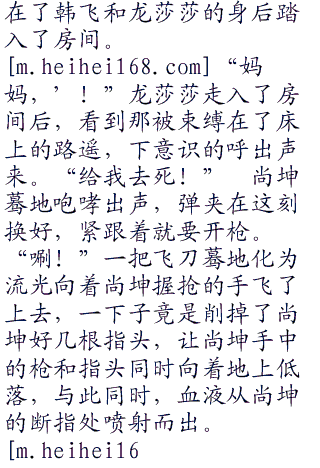 在了韩飞和龙莎莎的身后踏
入了房间。
[m.heihei168.com]“妈
妈，’！”龙莎莎走入了房
间后，看到那被束缚在了床
上的路遥，下意识的呼出声
来。“给我去死！” 尚坤
蓦地咆哮出声，弹夹在这刻
换好，紧跟着就要开枪。
“唰！”一把飞刀蓦地化为
流光向着尚坤握抢的手飞了
上去，一下子竟是削掉了尚
坤好几根指头，让尚坤手中
的枪和指头同时向着地上低
落，与此同时，血液从尚坤
的断指处喷射而出。
[m.heihei16